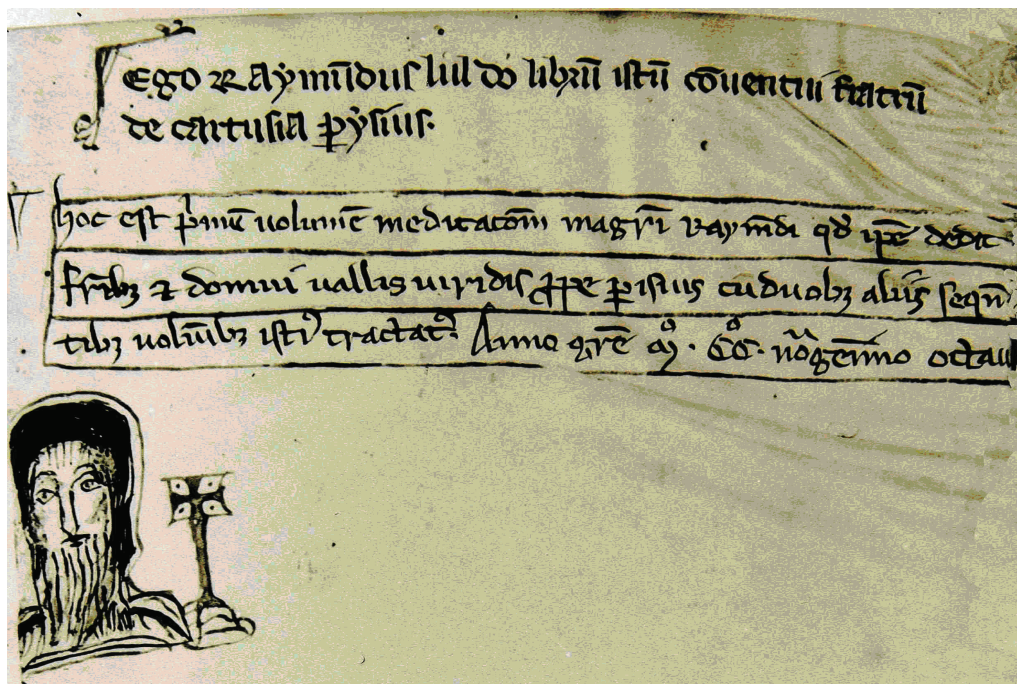 Ego Raymūdus lul do librū istū cōuentui fratrū
de cartusia ꝑysius.
hoc est p̄mū uolumē meditacōm̄ magrī Raymdi qd̄ ip̄e dedit
frībꝫ ⁊ domui uallis uiridis ꝓpe ꝑisius cū duobꝫ aliis seqn̄
tibꝫ uolūībꝫ istiꝰ tractatꝰ. Anno grē mͦ. CCͦ. nōagēīmo octau